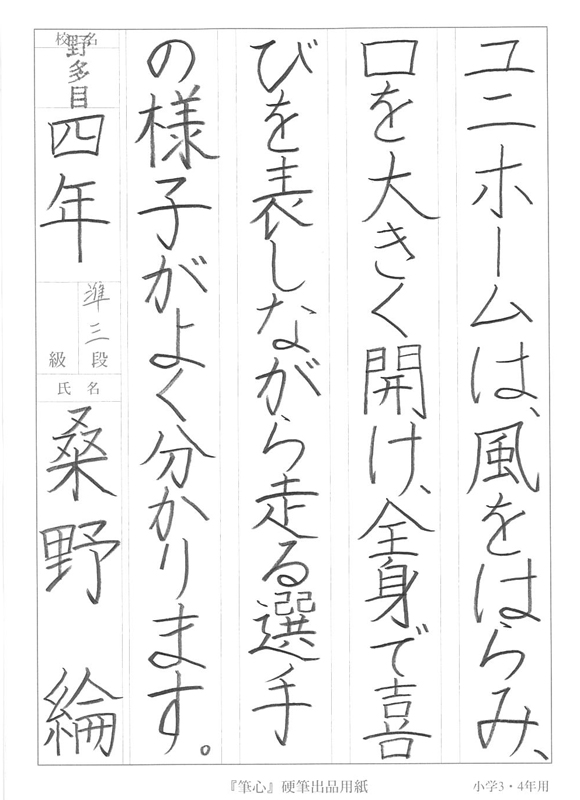 ユニホームは、風をはらみ、
口を大きく開け、全身で喜
びを表しながら走る選手
の様子がよく分かります。
校名
野多目
四年
準三段
級
氏名
桑野 綸
『筆心』硬筆出品用紙
小学3・4年用